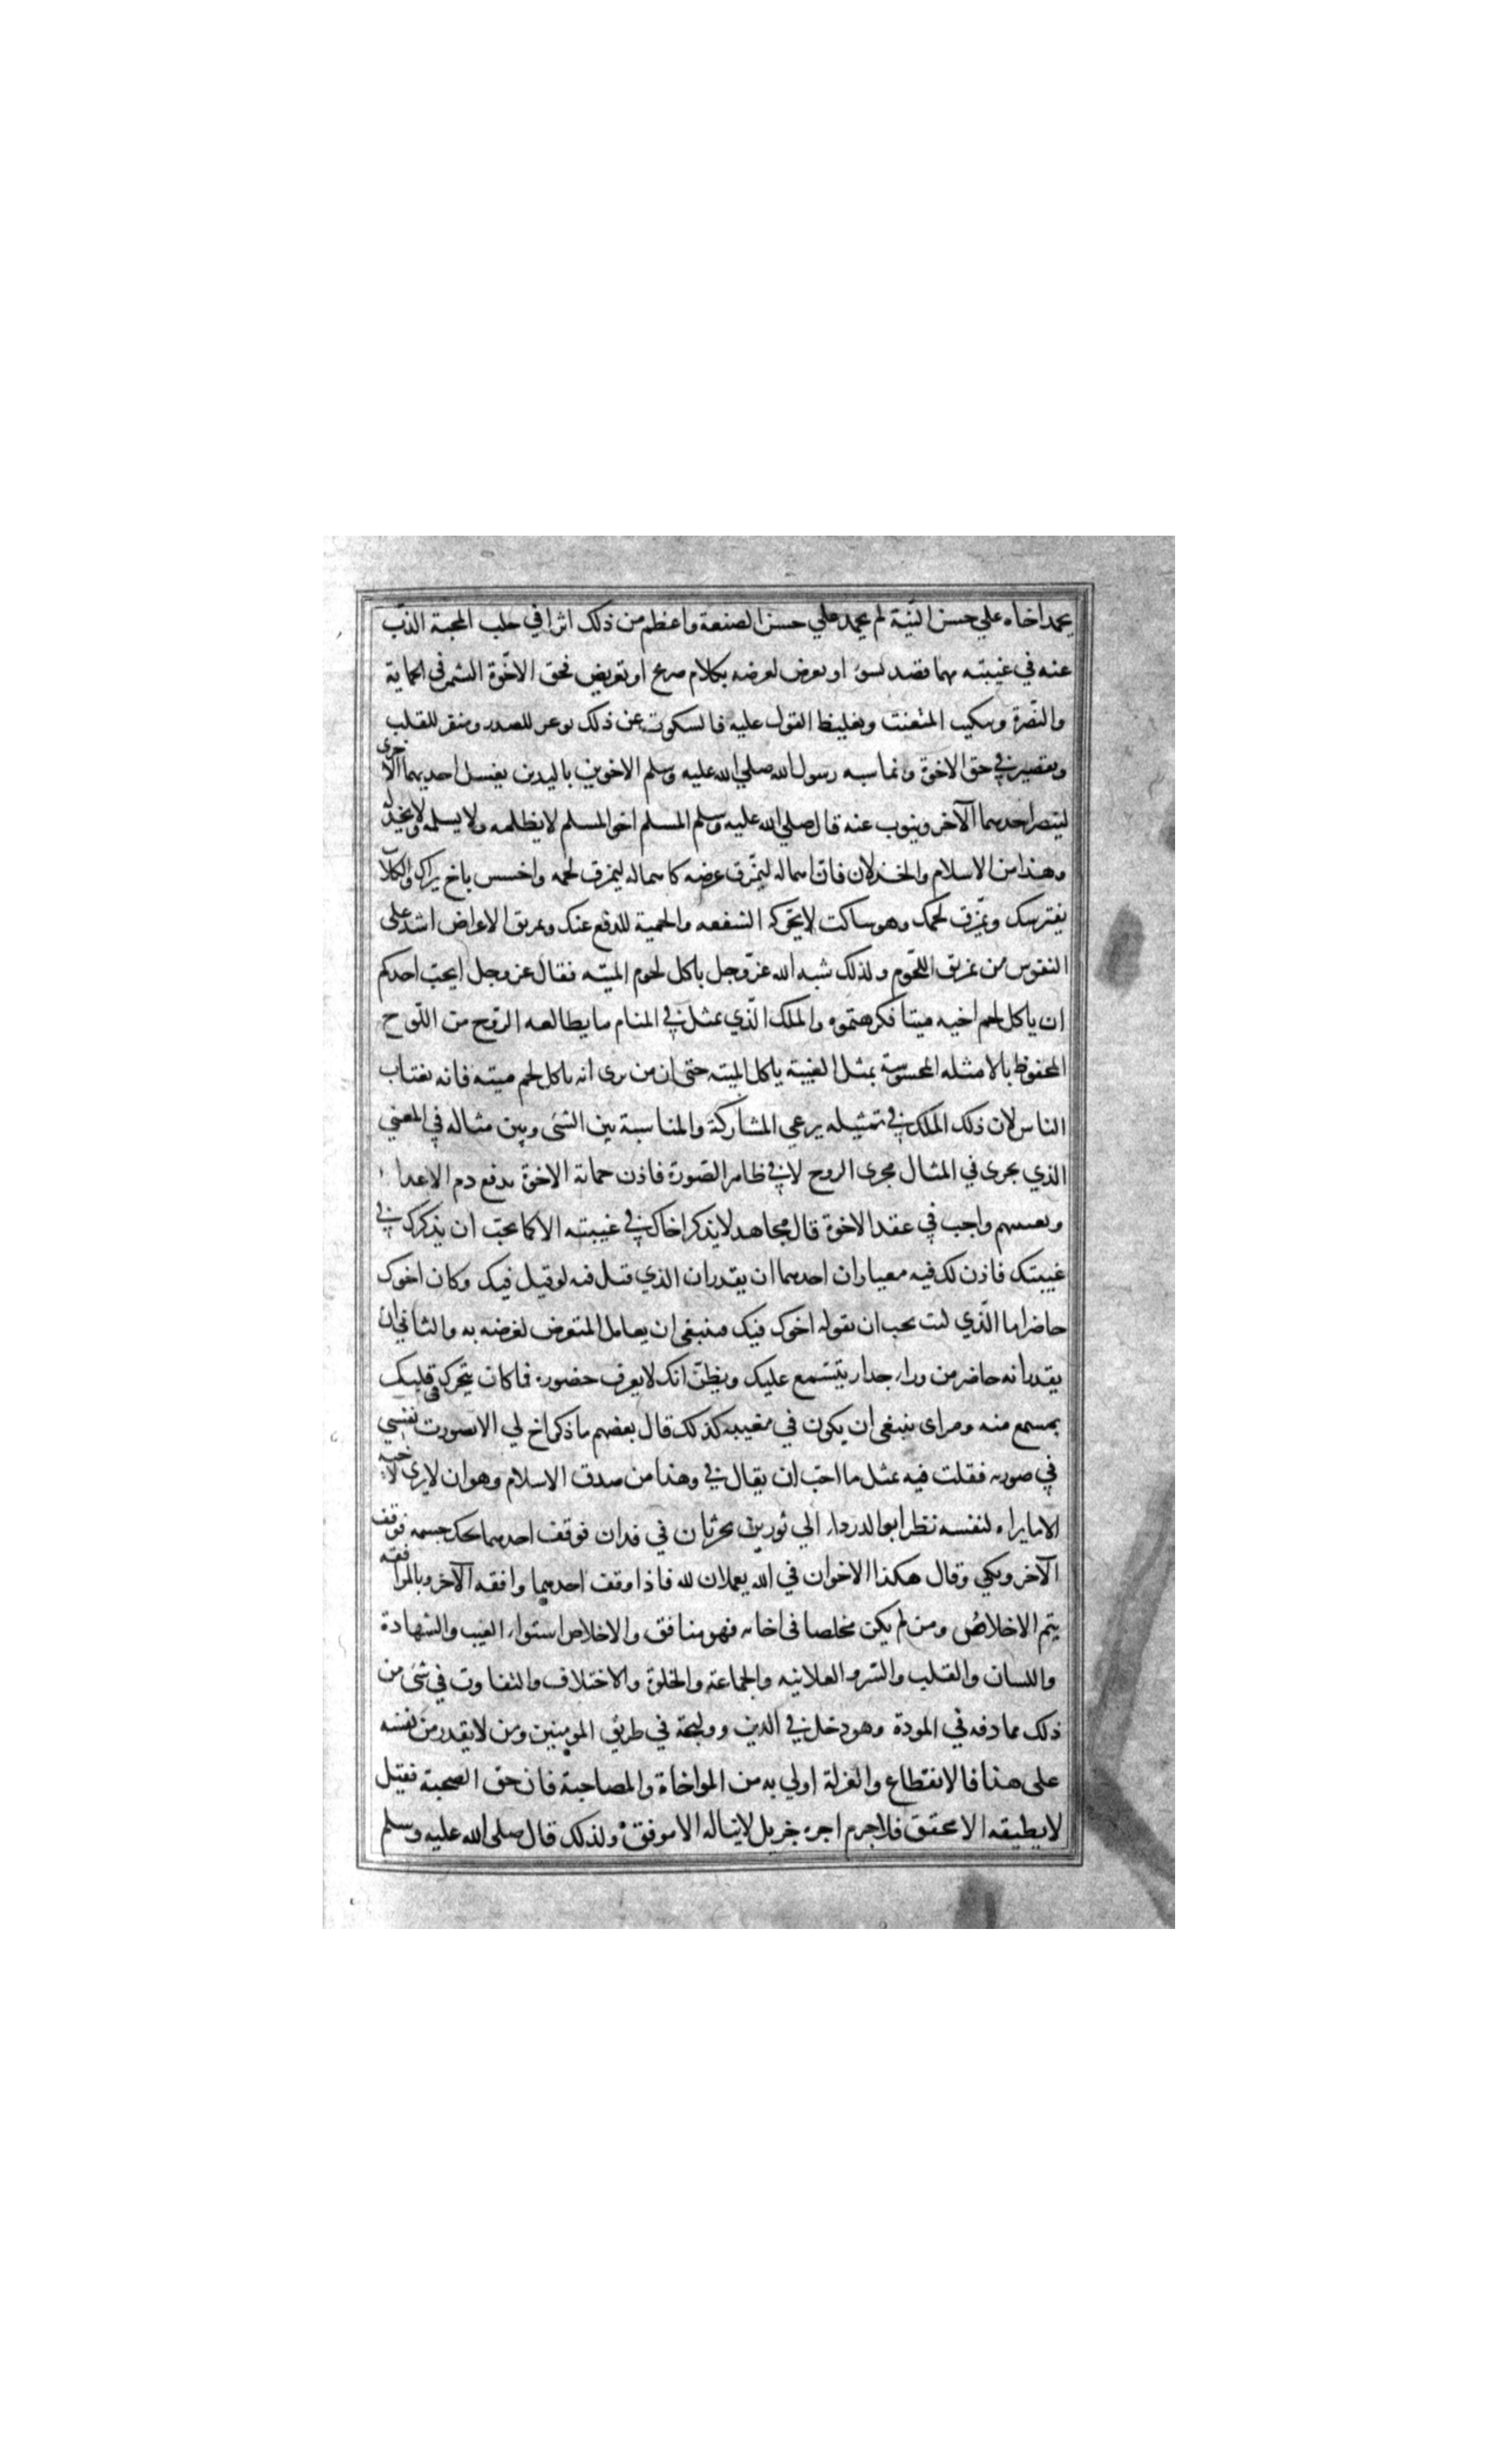 يحمد اخاه علي حسن النّية لم يحمد علي حسن الصنعة واعظم من ذلك اثرا في جلب المحبة الذّب
عنه في غيبته مهما قصد بسوء او تعرض لعرضه بكلام صريح او تعريض فحق الاخّوة التشمر في الحماية
والنّصرة وتبكيت المتعنت وتغليظ القول عليه فالسكوت عن ذلك موغر للصدر ومنفر للقلب
وتقصير في حق الاخوة وانما شبه رسول الله صلي الله عليه وسلم الاخوين باليدين يغسل احديهما الاخرى
لينصر احدهما الآخر وينوب عنه قال صلي الله عليه وسلم المسلم اخو المسلم لا يظلمه ولا يسلمه ولا يخذله
وهذا من الاسلام والخذلان فان اسماله ليتمزّق عرضه كاسماله ليتمزق لحمه واخسس باخ يراك والكلاب
تفترسك وتمزّق لحمك وهو ساكت لا تحّركه الشفقه والحمية للدفع عنك وتمزيق الاعراض اشد على
النفوس من تمزيق اللحوم ولذلك شبه الله عزّ وجل باكل لحوم الميته فقال عز وجل ايحبّ احدكم
ان ياكل لحم اخيه ميتا فكرهتموه والملك الّذي يمثل في المنام ما يطالعه الرّوح من اللّوح
المحفوظ بالامثله المحسوسة يمثل الغيبة ياكل الميته حتى ان من يرى انه ياكل لحم ميته فانه يغتاب
الناس لان ذلك الملك في تمثيله يرعي المشاركة والمناسبة بين الشئ وبين مثاله في المعني
الذي يجرى في المثال مجرى الروح لا في ظاهر الصّورة فاذن حماية الاخوة بدفع ذم الاعداء
واجب في عقد الاخوة قال مجاهد لا يذكر اخاك في غيبته الا كما تحبّ ان يذكرك في
غيبتك فاذن لك فيه معياران احدهما ان يقدر ان الذي قيل فيه لو قيل فيك وكان اخوك
حاضرا ما الّذي كنت تحب ان يقوله اخوك فيك فينبغى ان يعامل المتعرض لعرضه به والثاني ان
يقدر انه حاضر من وراء جدار يتسّمع عليك ويظنّ انك لا يعرف حضوره فما كان يتحرك في قلبك
بمسمع منه ومراى ينبغى ان يكون في مغيبه كذلك قال بعضهم ما ذكر اخ لي الا تصورت نفسي
في صورته فقلت فيه مثل ما احبّ ان يقال في وهذا من صدق الاسلام وهو ان لا يرى لاخيه
الا ما يراه لنفسه نظر ابو الدرداء الي ثورين يحرثان في فدان فوقف احدهما يحك جسمه فوقف
الآخر وبكي وقال هكذا الاخوان في الله يعملان لله فاذا وقف احدهما وافقه الآخر وبالمرافقه
يتم الاخلاص ومن لم يكن مخلصا في اخائه فهو منافق والاخلاص استواء الغيب والشهادة
واللسان والقلب والسّر والعلانيه والجماعة والخلوة والاختلاف والتفاوت في شئ من
ذلك مماذقه في المودة وهو دخل في الدين ووليجة في طريق المومنين ومن لا يقدر من نفسه
على هذا فالانقطاع والعزلة اولي به من المواخاة والمصاحبة فان حق الصحبة ثقيل
لا يطيقه الا محقق فلا جرم اجره جزيل لا يناله الا موفق ولذلك قال صلى الله عليه وسلم